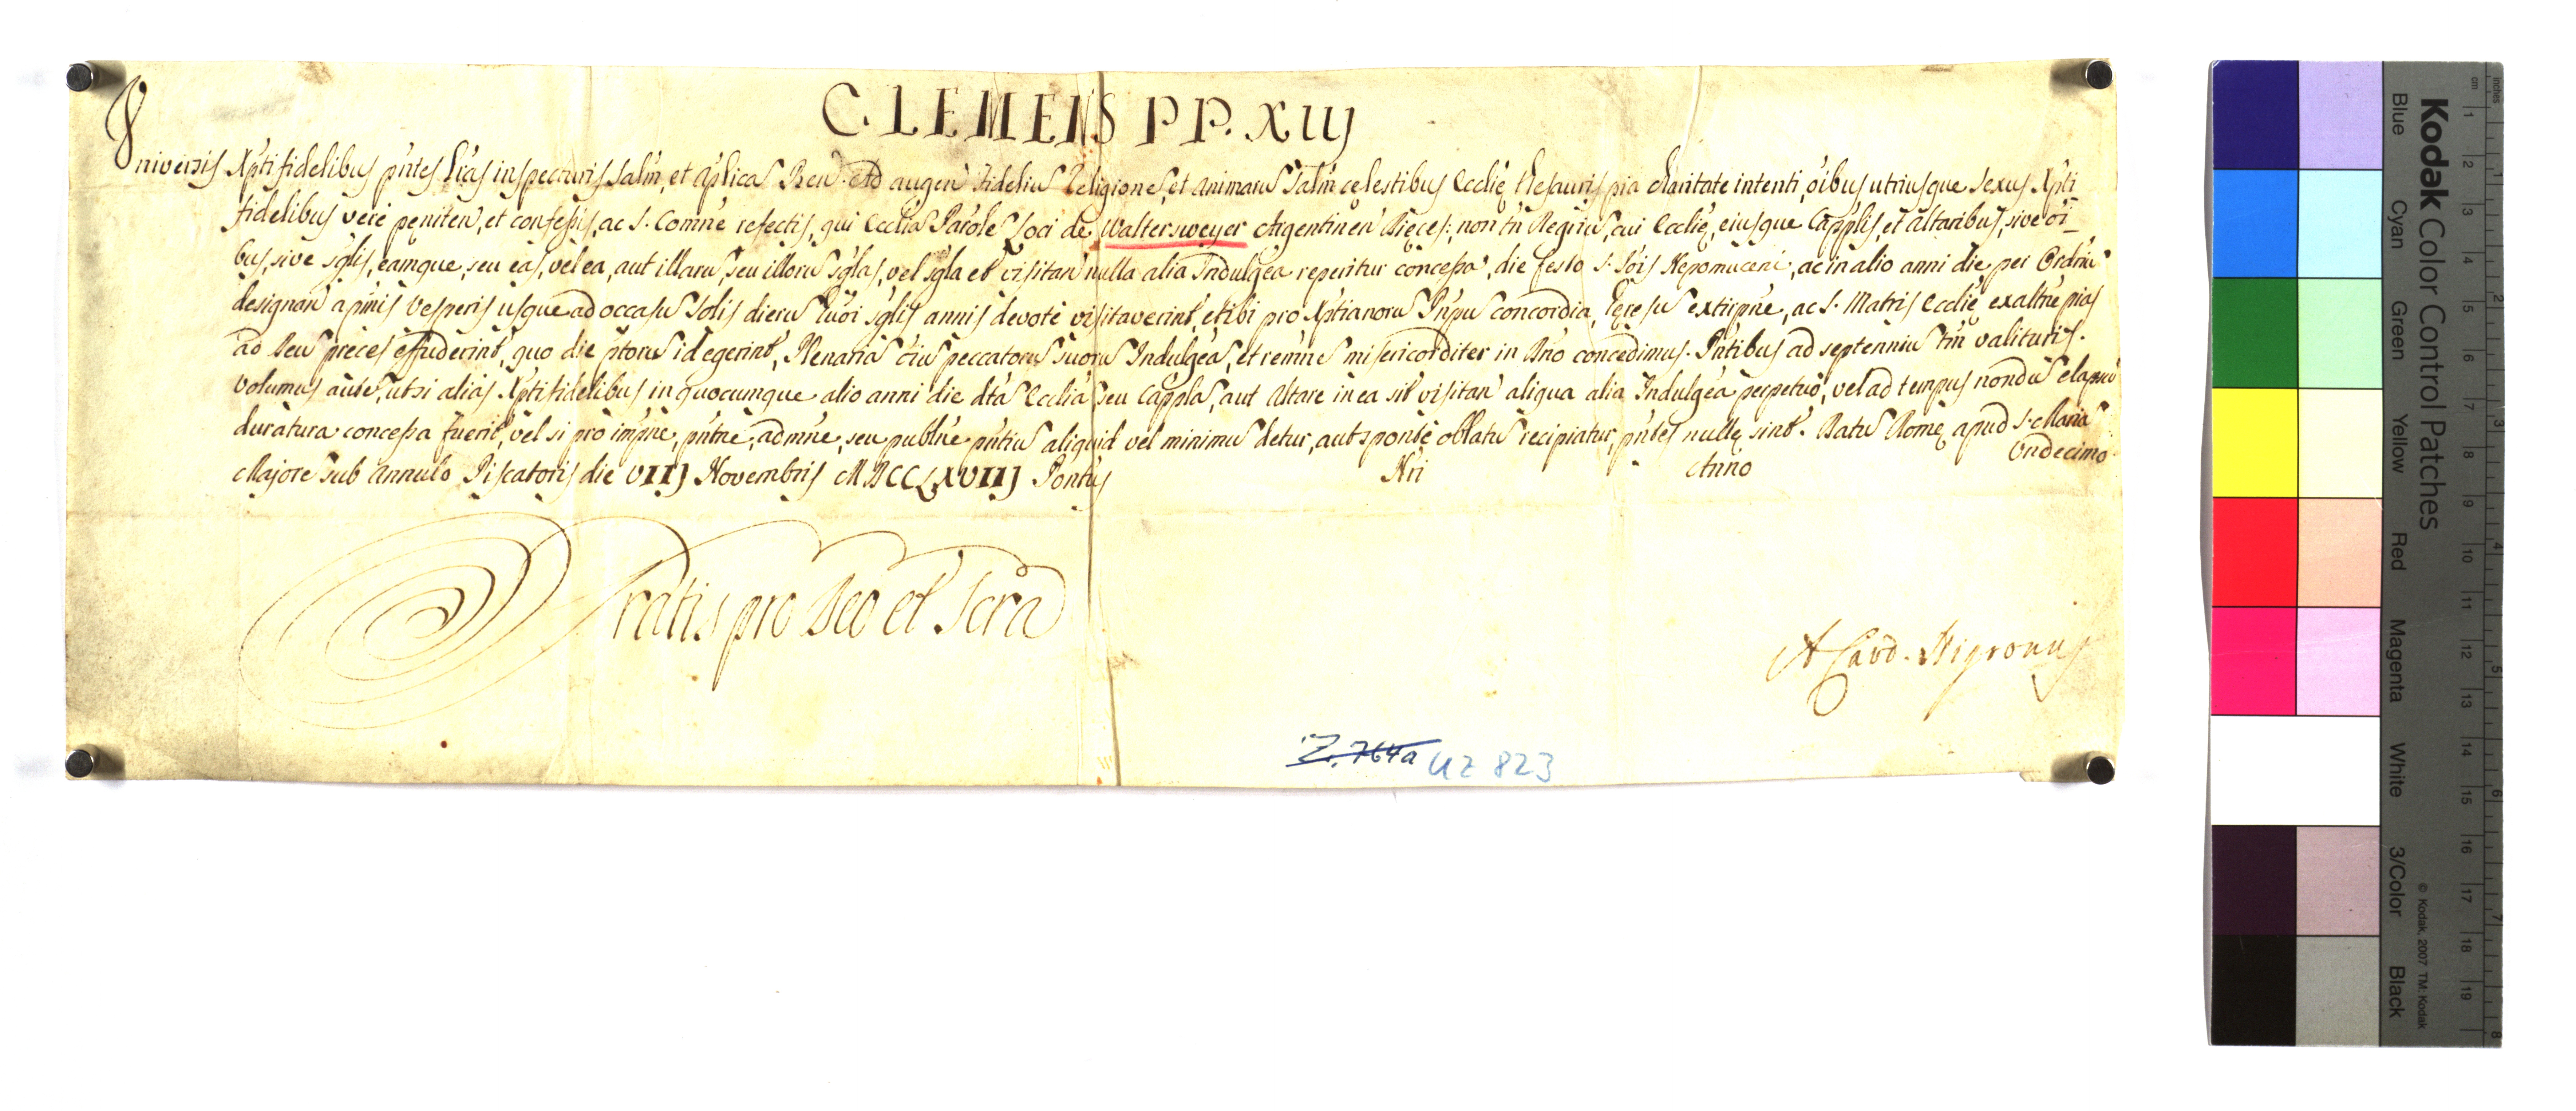 CLEMENS PP. XIIJ
Universis Xpti fidelibus pñtes Lras inspecturis Salm, et Aplica Ben. Ad augen Fideliu Religione, et animaru Salm celestibus Ecclię thesauris pia charitate intenti, oibus utriusque sexus Xpti
fidelibus verè pęniten, et confeßis, ac S. Comñe refectis, qui Ecclia Parōle Loci de Waltersweyer Argentinen Dięces: non tñ Regiru, cui Ecclię, eiusque Capplis, et Altaribus, sive oi_
bus, sive sglis, eamque, seu eas, vel ea, aut illaru, seu illoru sglas, vel sgla et visitan nulla alia Indulgea reperitur conceßa, die festo S. Jois Nepomuceni, ac in alio anni die per Ordriu
designan a pmis Vesperis usque ad occasu Solis dieru huōi sglis annis devotè visitaverint, et ibi pro Xptianoru Pnpu concordia, hęresu extirpñe, ac S. Matris Ecclię exaltñe pias
ad Deu preces effuderint, quo die ptoru id egerint, Plenaria oiu peccatoru suoru Indulgea, et remñe misericorditer in Dño concedimus. Pntibus ad septenniu tm valituris.
Volumus aute, ut si alias Xpti fidelibus in quocumque alio anni die dta Ecclia seu Cappla, aut Altare in ea sit visitan aliqua alia Indulgea perpetuo, vel ad tempus nondu elapsu
duratura conceßa fuerit, vel si pro impñe, pntñe, admñe, seu publñe pntiu aliquid vel minimu detur, aut sponte oblatu recipiatur, pntes nullę sint. Datu Romę apud S. Maria
Majore sub Annulo Piscatoris die VIIJ Novembris MDCCLXVIIJ Pontus Nri Anno Undecimo
Gratis pro Deo et Scra
A Card. Nigronus
Z. 764a UZ 823
Kodak Color Control Patches
Blue Cyan Green Yellow Red Magenta White 3/Color Black
© Kodak, 2007 TM: Kodak
cm 1 2 3 4 5 6 7 8 9 10 11 12 13 14 15 16 17 18 19
inches 1 2 3 4 5 6 7 8